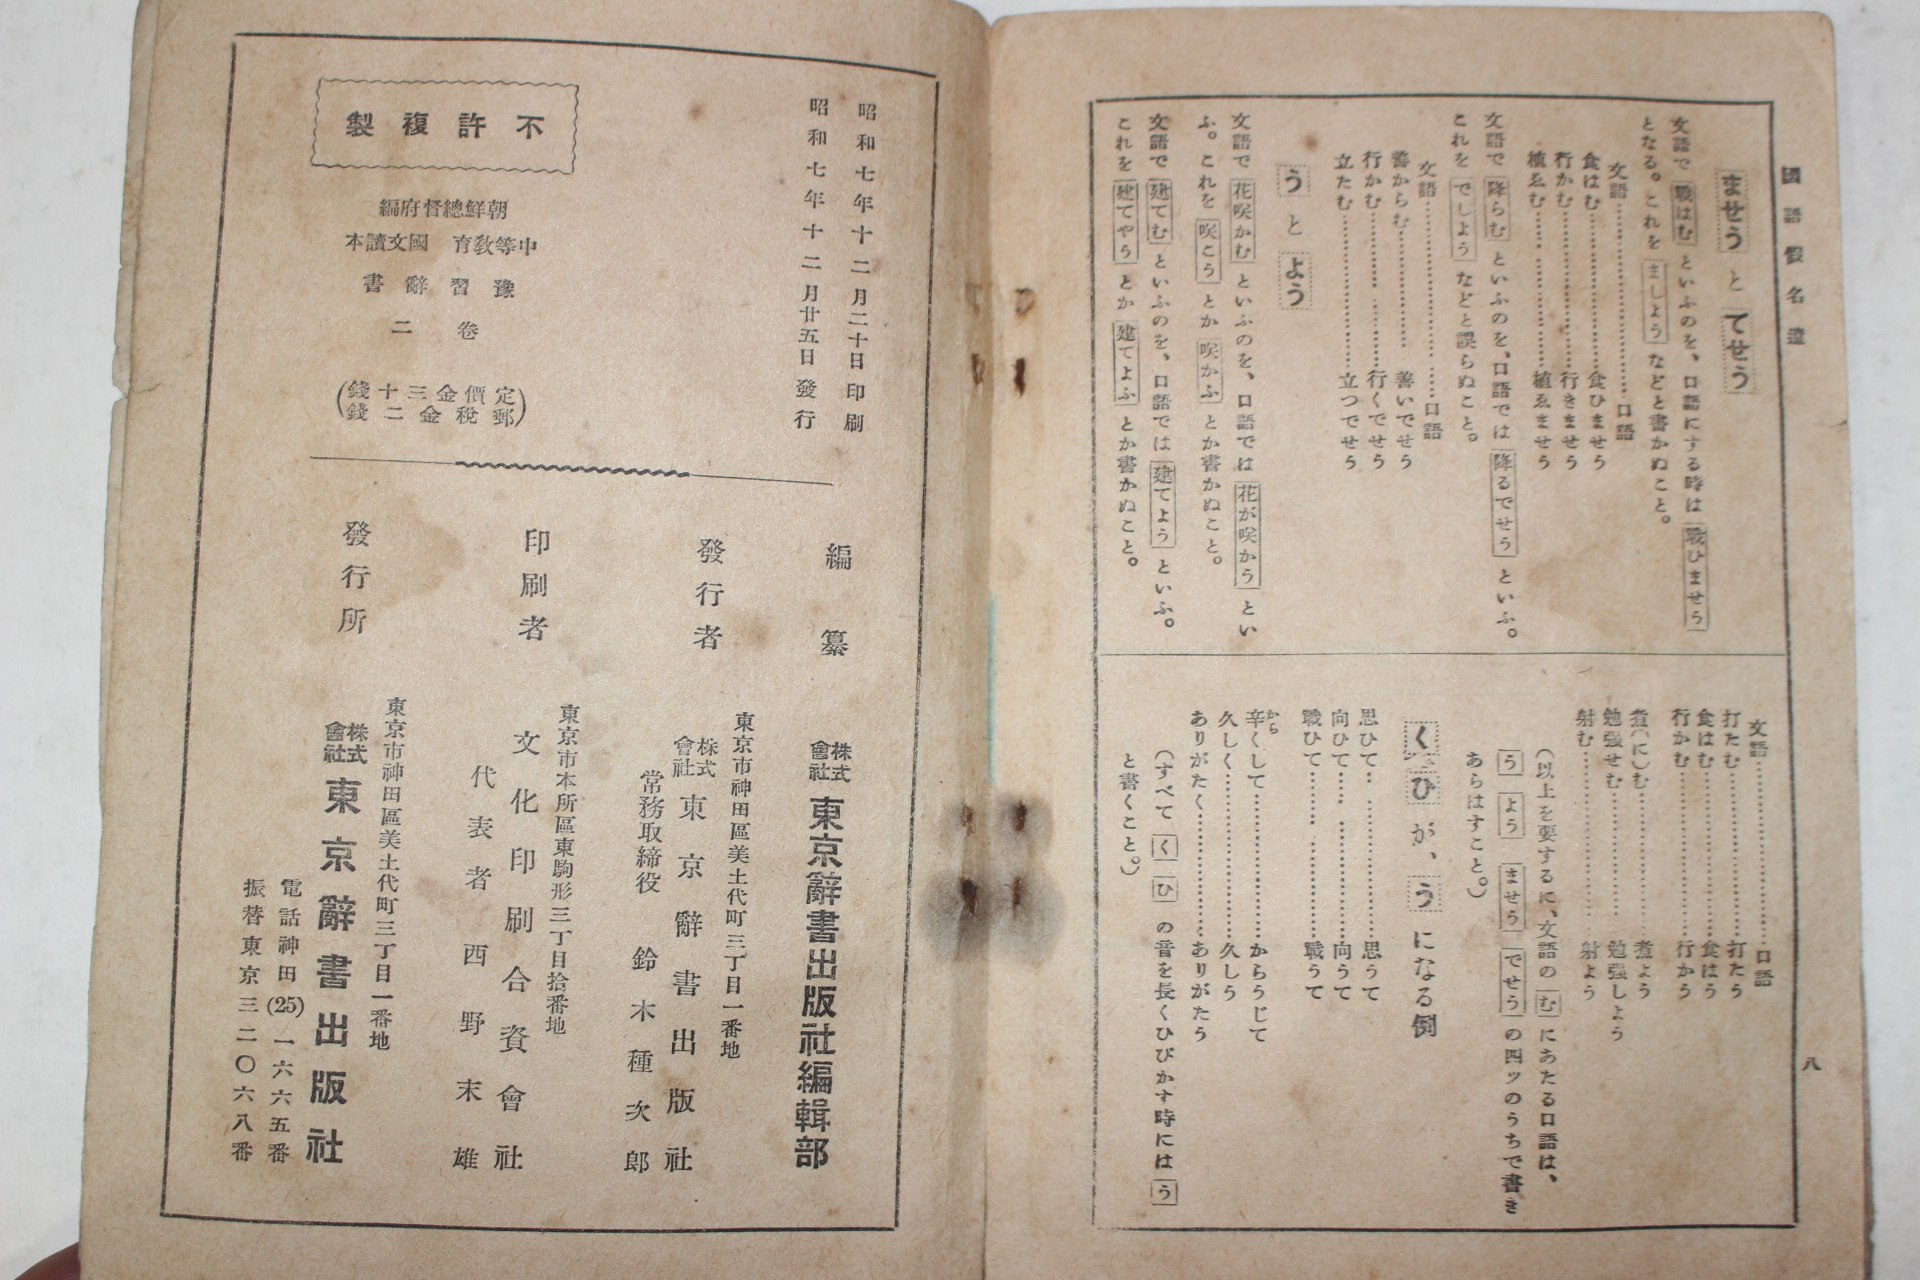 國語假名遣
八
ませう と でせう
文語で 戰はむ といふのを、口語にする時は 戰ひませう
となる。これを ましよう などと書かぬこと。
文語………………口語
食はむ………………食ひませう
行かむ………………行きませう
植ゑむ………………植ゑませう
文語で 降らむ といふのを、口語では 降るでせう といふ。
これを でしよう などと誤らぬこと。
文語………………口語
善からむ………………善いでせう
行かむ………………行くでせう
立たむ………………立つでせう
う と よう
文語で 花咲かむ といふのを、口語では 花が咲かう とい
ふ。これを 咲こう とか 咲かふ とか書かぬこと。
文語で 建てむ といふのを、口語では 建てよう といふ。
これを 建てやう とか 建てよふ とか書かぬこと。
文語………………口語
打たむ………………打たう
食はむ………………食はう
行かむ………………行かう
煮(に)む………………煮よう
勉強せむ………………勉強しよう
射む………………射よう
(以上を要するに、文語の む にあたる口語は、
う よう ませう でせう の四ツのうちで書き
あらはすこと。)
く ひ が、う になる例
思ひて………………思うて
向ひて………………向うて
戰ひて………………戰うて
辛くして………………からうじて
から
久しく………………久しう
ありがたく………………ありがたう
(すべて く ひ の音を長くひびかす時には う
と書くこと。)
昭和七年十二月二十日印刷
昭和七年十二月廿五日發行
不許複製
朝鮮總督府編
中等教育 國文讀本
豫習辭書
卷二
定價金三十錢
郵税金二錢
編纂
株式會社 東京辭書出版社編輯部
發行者
東京市神田區美土代町三丁目一番地
株式會社 東京辭書出版社
常務取締役 鈴木種次郎
印刷者
東京市本所區東駒形三丁目拾番地
文化印刷合資會社
代表者 西野末雄
發行所
東京市神田區美土代町三丁目一番地
株式會社 東京辭書出版社
電話神田(25)一六六五番
振替東京三二〇六八番